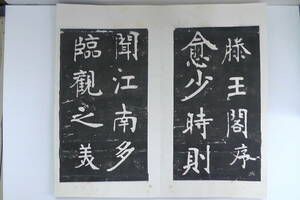 滕王閣序
愈少時則
聞江南多
臨觀之美